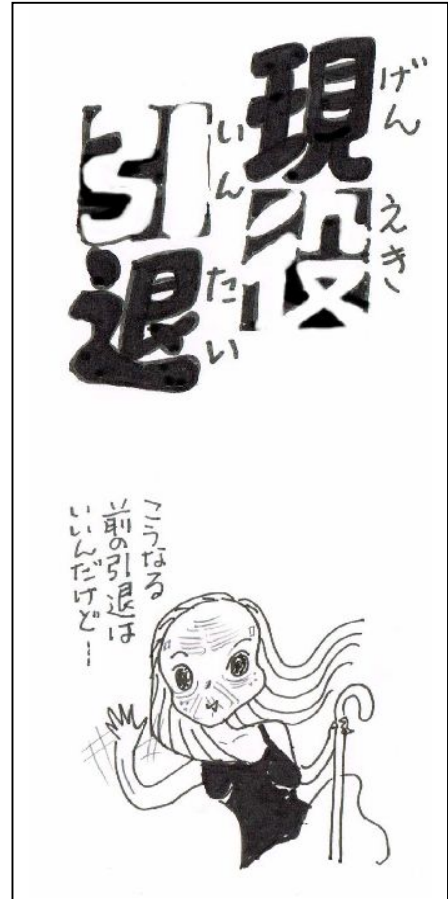 現役
げんえき
引退
いんたい
こうなる
前の引退は
いいんだけど…